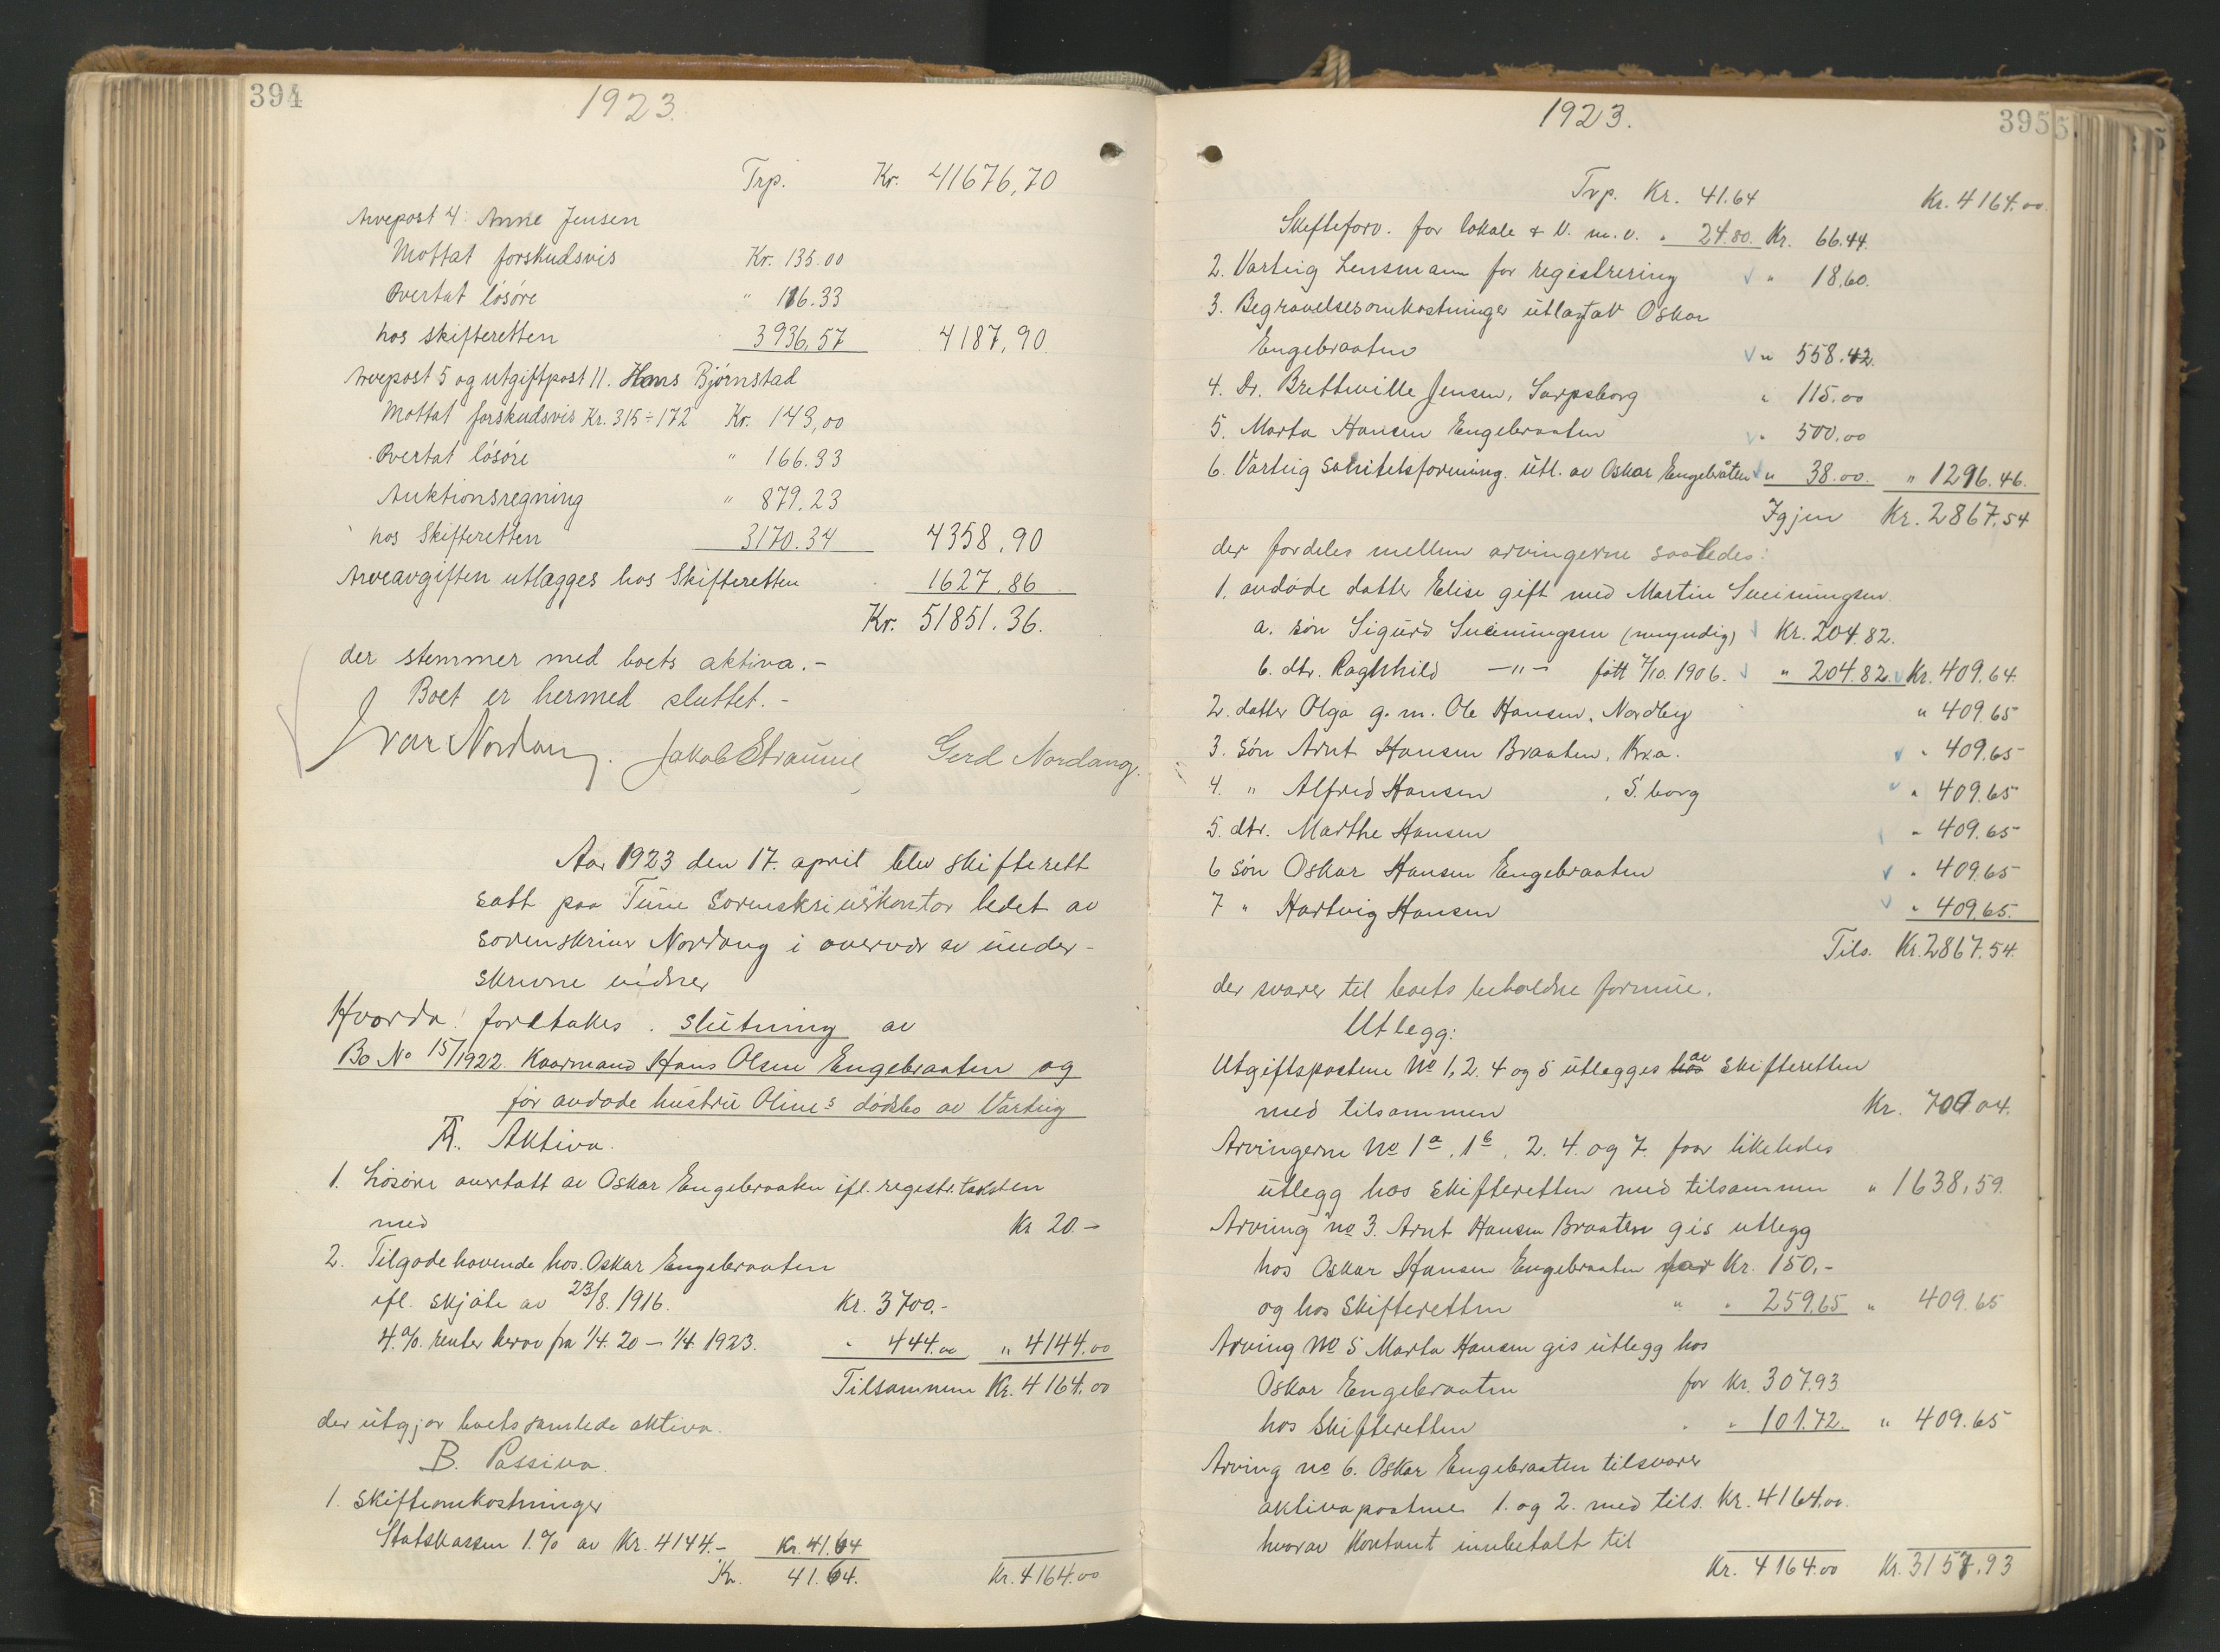 394
1923.
Trp. Kr. 41676,70
Arvepost 4: Anne Jensen
Mottat forskudsvis Kr. 135.00
Overtat løsøre " 116.33
hos skifteretten 3936,57 4187,90
Arvepost 5 og utgiftpost 11. Hans Bjørnstad
Mottat forskudsvis Kr. 315÷172 Kr. 143,00
Overtat løsøre " 166.33
Auktionsregning " 879.23
hos Skifteretten 3170.34 4358,90
Arveavgiften utlægges hos Skifteretten 1627,86
Kr. 51851.36.
der stemmer med boets aktiva.-
Boet er hermed sluttet.-
Ivar Nordang. Jakob Straume Gerd Nordang.
Aar 1923 den 17. april blev skifterett
satt paa Tune Sorenskriverkontor ledet av
sorenskriver Nordang i overvær av under-
skrevne vidner
Hvorda! foretakes slutning av
Bo No 15/1922. Kaarmand Hans Olsen Engebraaten og
før avdøde hustru Olines dødsbo av Varteig
A. Aktiva.
1. Løsøre overtatt av Oskar Engebraaten ifl. registr. taksten
med Kr 20.-
2. Tilgodehavende hos Oskar Engebraaten
ifl. skjøte av 23/8. 1916. Kr. 3700.-
4.% renter herav fra 1/4. 20 - 1/4 1923. " 444.00 " 4144.00
Tilsammen Kr. 4164.00
der utgjør boets samlede aktiva.
B. Passiva.
1. Skifteomkostninger
Statskassen 1.% av Kr. 4144.- Kr. 41.64
Kr. 41.64. Kr. 4164.00
1923.
395
Trp. Kr. 41.64 Kr. 4164.00
Skifteforv. for lokale & v. m.v. " 24.80. Kr. 66.44.
2. Varteig Lensmann for registrering " 18.60.
3. Begravelsesomkostninger utlagt av Oskar
Engebraaten " 558.42.
4. Dr. Bretteville Jensen, Sarpsborg " 115.00
5. Marta Hansen Engebraaten " 500.00
6. Varteig Sanitetsforening. utl. av Oskar Engebråten " 38.00. " 1296.46.
Igjen Kr. 2867.54
der fordeles mellem arvingerne saaledes:
1. avdøde datter Elise gift med Martin Sveinungsen.
a. søn Sigurd Sveinungsen (umyndig) Kr. 204.82.
b. dtr. Ragnhild -"- født 7/10. 1906. " 204.82. Kr. 409.64.
2. datter Olga g. m. Ole Hansen, Nordby " 409.65
3. søn Arnt Hansen Braaten, Kr.a. " 409.65
4. " Alfred Hansen , S.borg " 409.65
5. dtr. Marthe Hansen " 409.65
6 søn Oskar Hansen Engebraaten " 409.65
7 " Hartvig Hansen " 409.65.
Tils. Kr. 2867.54.
der svarer til boets beholdne formue.
Utlegg:
Utgiftspostene No 1, 2. 4 og 5 utlegges hos av skifteretten
med tilsammen Kr. 700.04.
Arvingerne No 1a, 1b, 2. 4. og 7. faar likeledes
utlegg hos skifteretten med tilsammen " 1638,59.
Arving no 3. Arnt Hansen Braaten gis utlegg
hos Oskar Hansen Engebraaten for Kr. 150.-
og hos skifteretten " " 259.65 " 409.65
Arving No 5 Marta Hansen gis utlegg hos
Oskar Engebraaten for Kr. 307.93
hos skifteretten " " 101.72. " 409.65
Arving no 6. Oskar Engebraaten tilsvarer
aktivapostene 1. og 2. med tils. Kr. 4164.00.
hvorav kontant innbetalt til
Kr. 4164.00 Kr. 3157.93